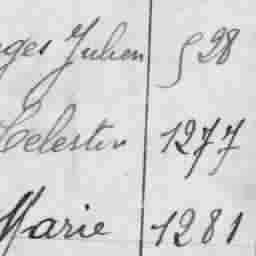 ges Julien 528
Celestin 1277
Marie 1281